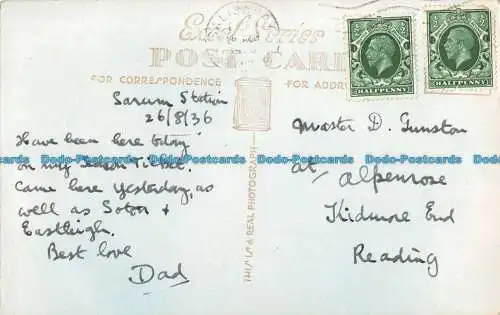 Excel Series
POST CARD
FOR CORRESPONDENCE
FOR ADDRE
HALFPENNY
HALFPENNY
Sarum Station
26/8/36
Have been here today
on my Season Ticket.
Came here yesterday, as
well as Soton &
Eastleigh.
Best love
Dad
THIS IS A REAL PHOTOGRAPH
Master D. Gunston
at Alpenrose
Kidmore End
Reading
Dodo-Postcards Dodo-Postcards Dodo-Postcards Dodo-Postcards Dodo-Postcards